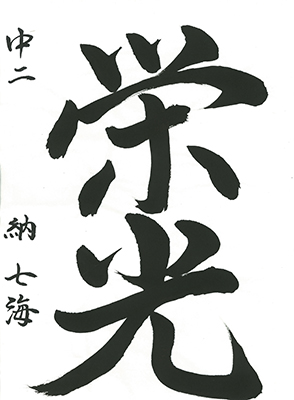 栄光
中二 納七海